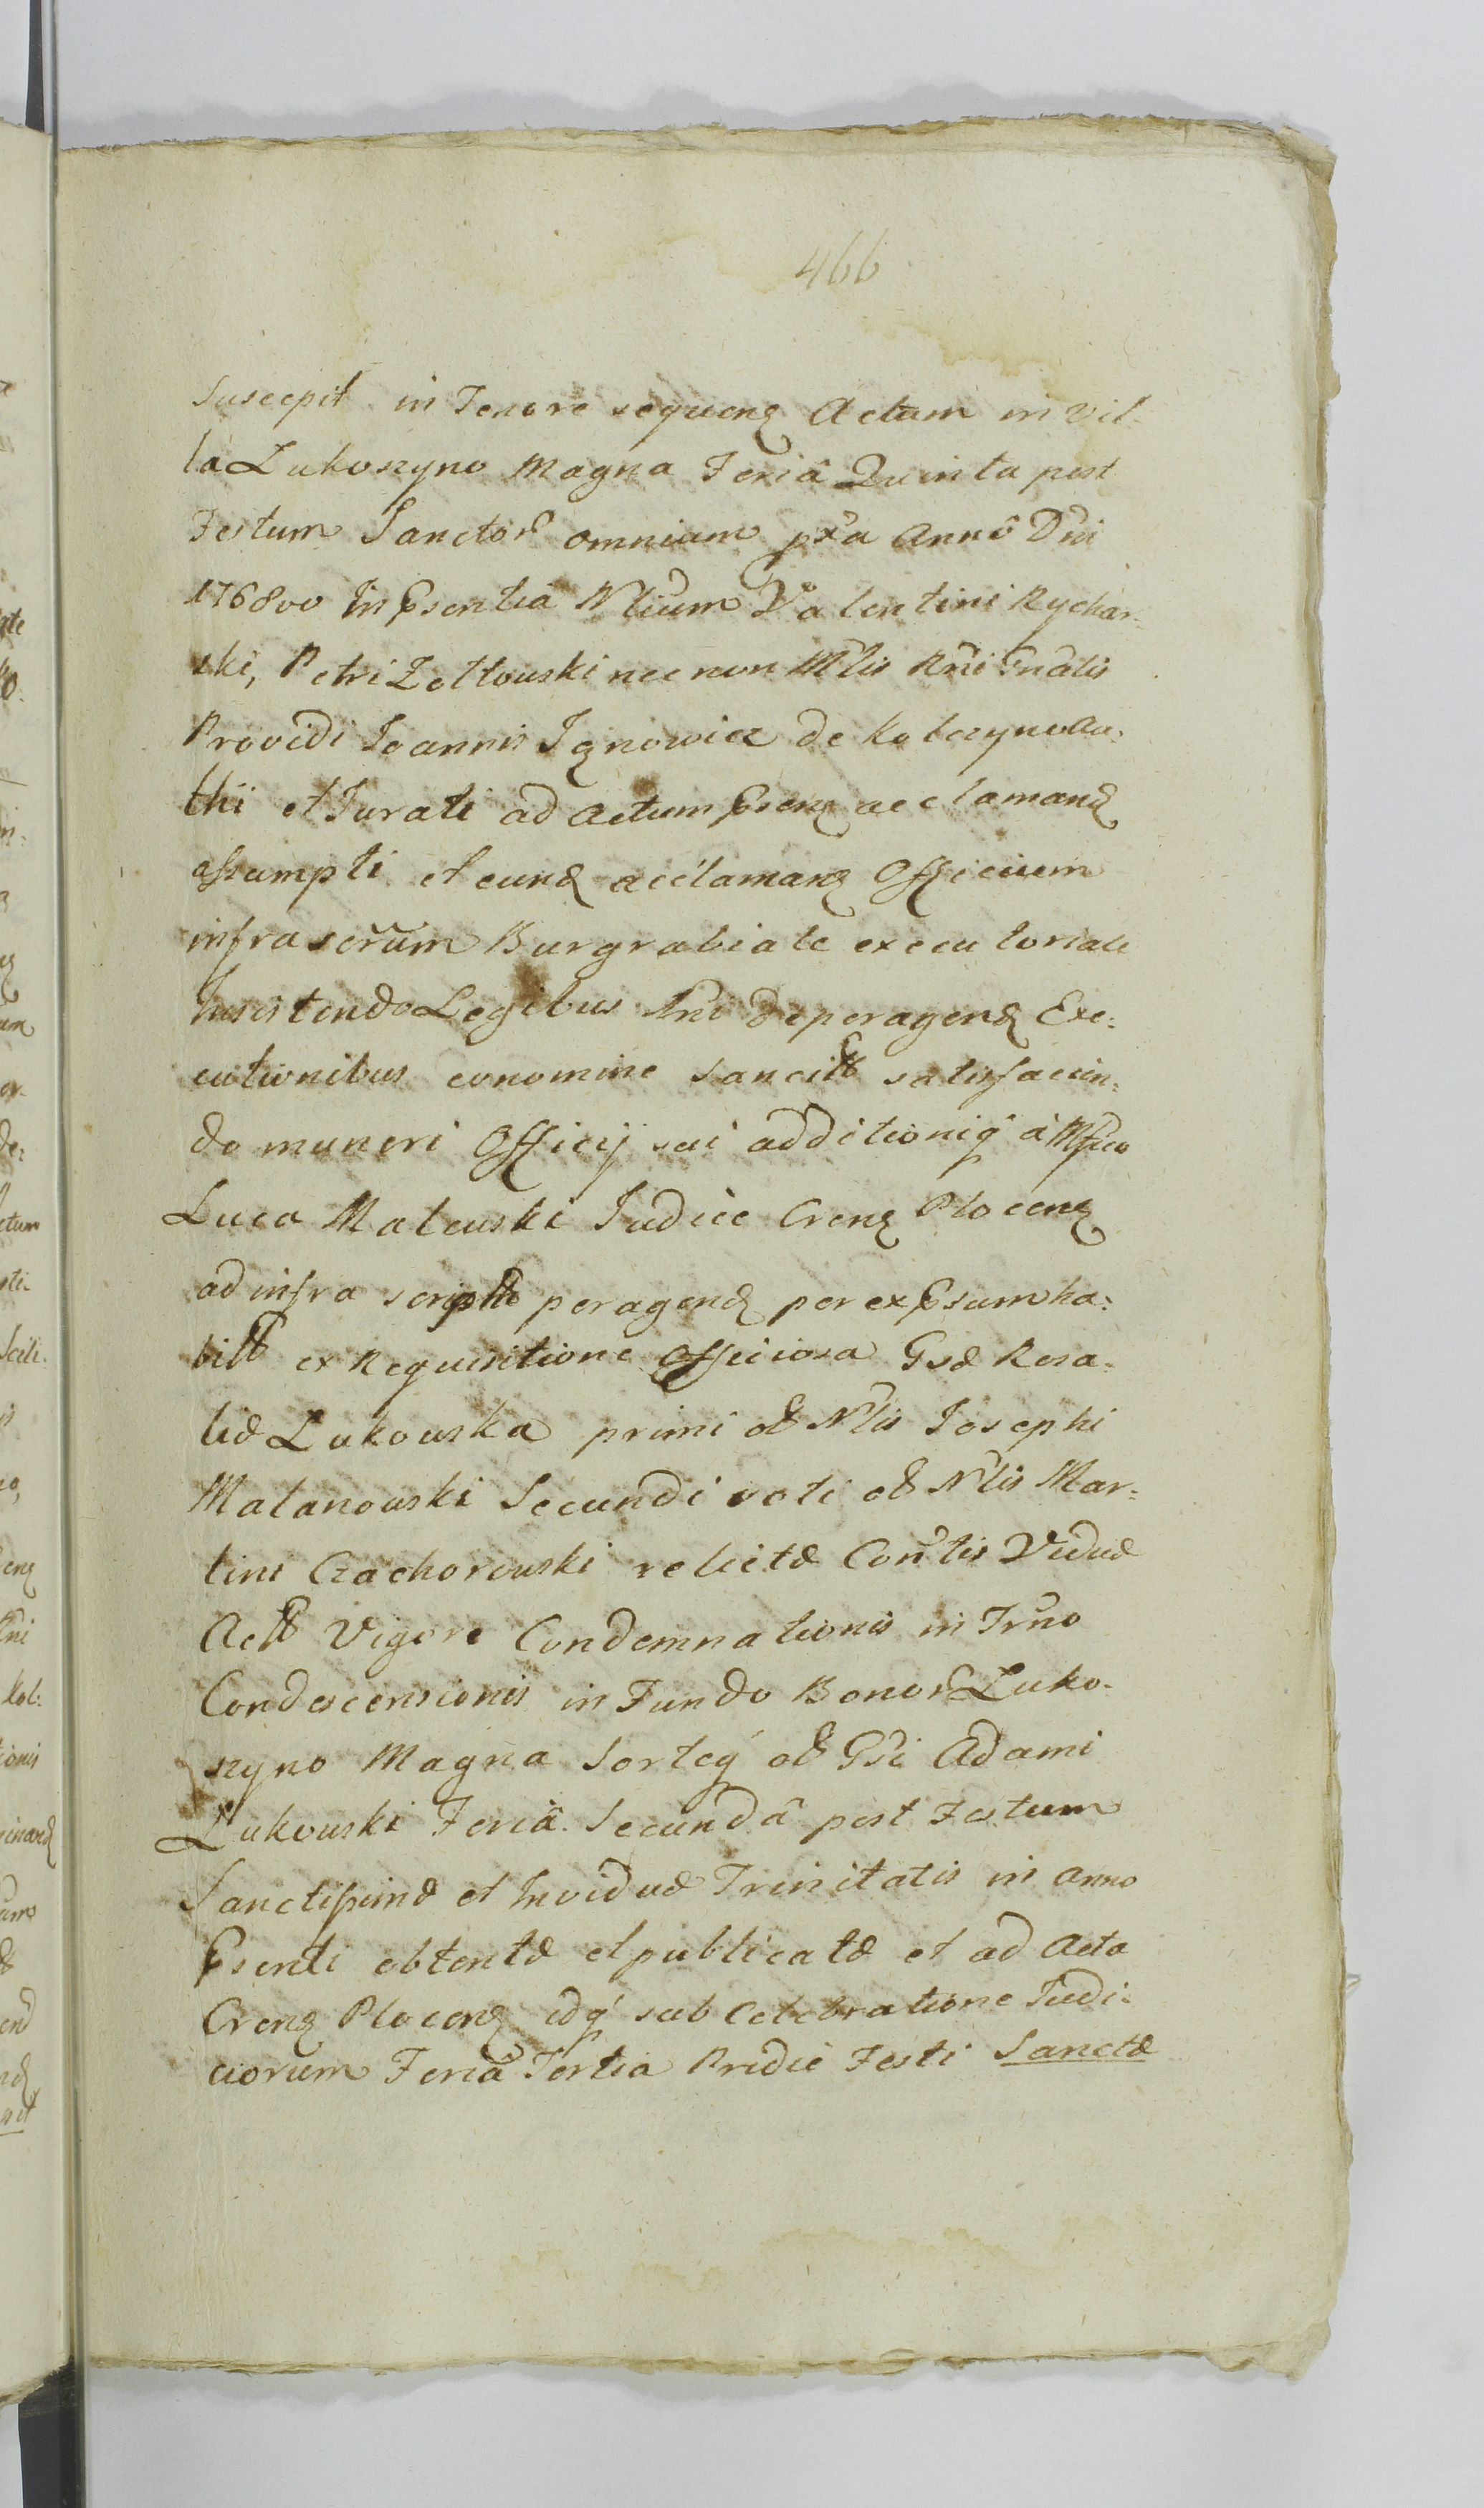 466
Suscepit in Tenore sequenę Actum in Vil-
la Lukoszyno Magna Feriâ Quinta post
Festum Sanctor omnium pxa Annô Dni
1768vo In Psentia Nlium Valentini Rychar-
ski, Petri Zołtowski nec non Mlis Rni Gnalis
Providi Joannis Jgnowicz de Kobczyno
thi et Jurati ad Actum Psenę acclamanę
assumpti et eunę acclamanę Officium
infrascrûm Burgrabiale executoriale
Insistendo Legibus Rni de peragenę Exe:
cutionibus eonomine sancitt satisfacien:
do muneri Officij sui additioniq̃ à Mfico
Luca Malewski Judice Crenę Plocenę
ad infra scriptt peragenę per exPsum ha:
bitt ex Requisitione Officiosa Gsæ Rosa-
liæ Lukowska primi ol Nlis Josephi
Malanowski Secundi voti ol Nlis Mar:
tini Czachorowski relictæ Contis Viduæ
Actt Vigore Condemnationis in Trno
Condescensionis in Fundo Bonor Luko-
szyno Magna Sorteq̃ ol Gsi Adami
Lukowski Feriâ Secundâ post Festum
Sanctissimæ et Inviduæ Trinitatis in anno
Psenti obtentæ et publicatæ et ad Acta
Crenę Plocenę idq̃ sub Celebratione Judi-
ciorum Feriâ Tertia Pridie Festi Sanctæ